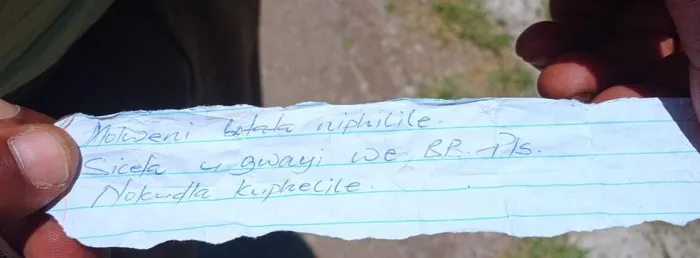 Molweni botata niphilile.
Sicela u gwayi we BB. Pls.
Nokudla kuphelile.